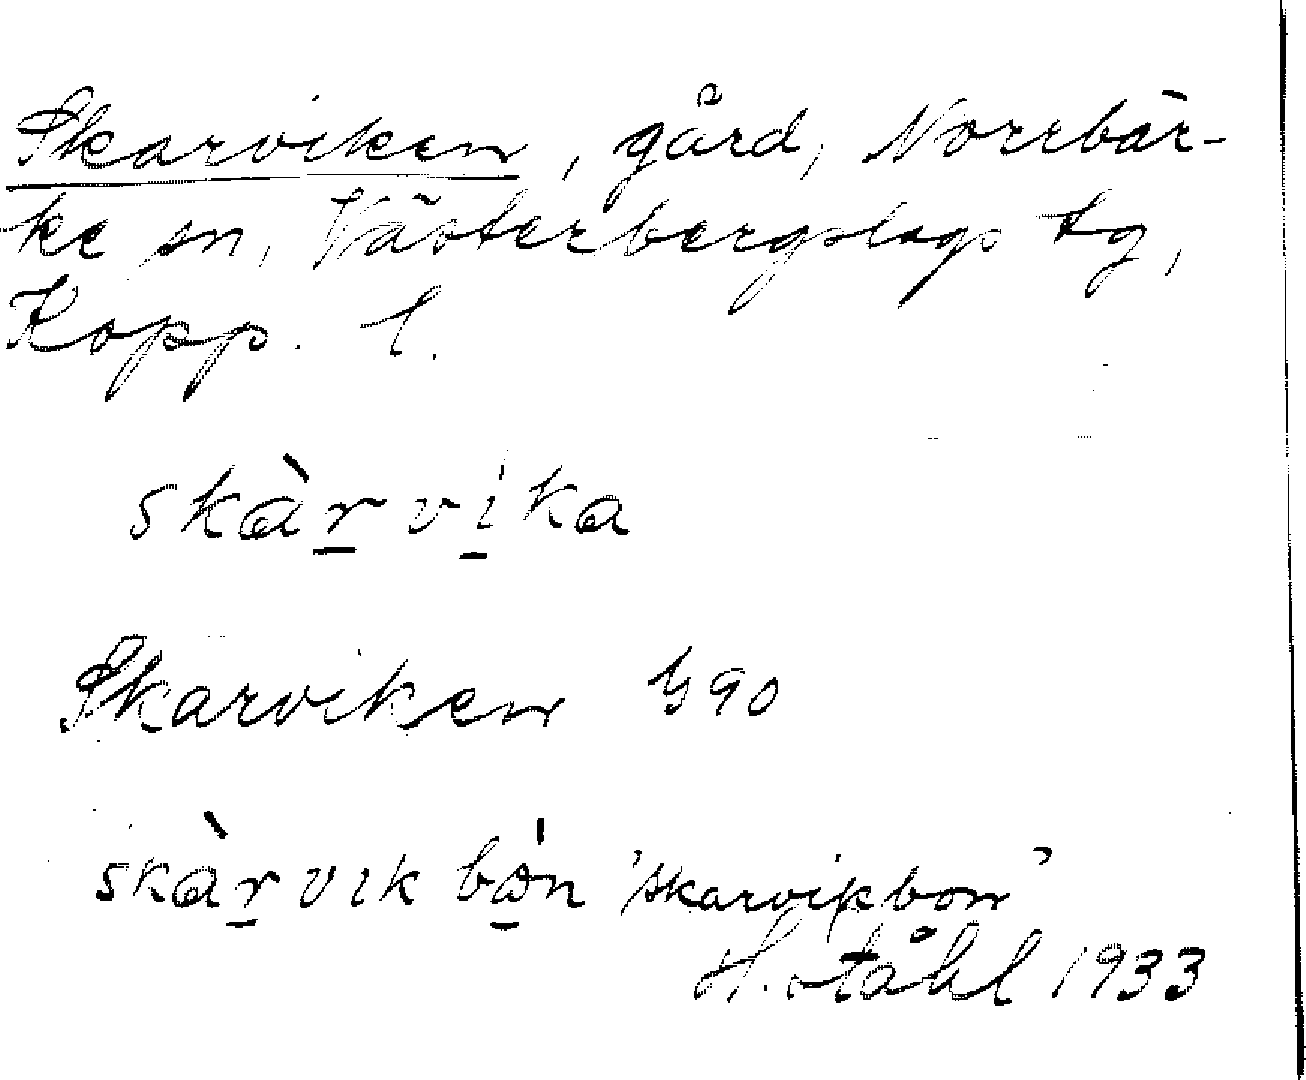 Skarviken, gård, Norrbär-
ke sn, Västerbergslags tg,
Kopp. l.
skàrvika
Skarviken G90
skàrvik bón 'skarvikbon'
H. Ståhl 1933